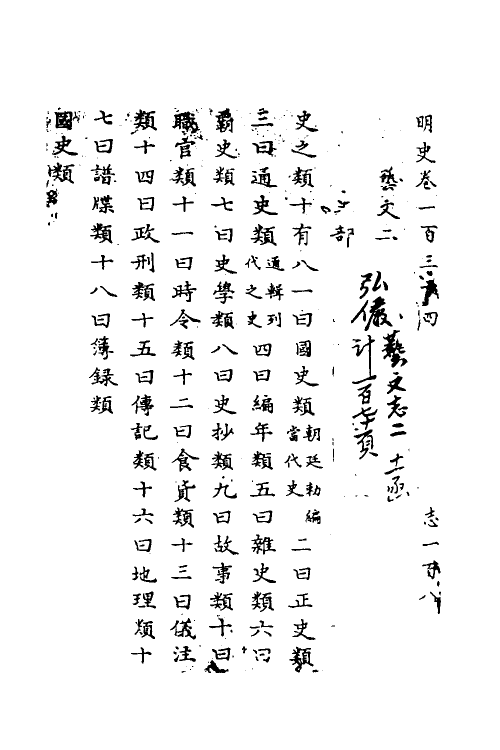 明史卷一百三十四
志一百八
藝文二
史部
弘儼藝文志二 十一函
計一百七十頁
史之類十有八一曰國史類 朝廷勅編當代史 二曰正史類
三曰通史類 通輯列代之史 四曰編年類五曰雜史類六曰
霸史類七曰史學類八曰史抄類九曰故事類十曰
職官類十一曰時令類十二曰食貨類十三曰儀注
類十四曰政刑類十五曰傳記類十六曰地理類十
七曰譜牒類十八曰簿錄類
國史類